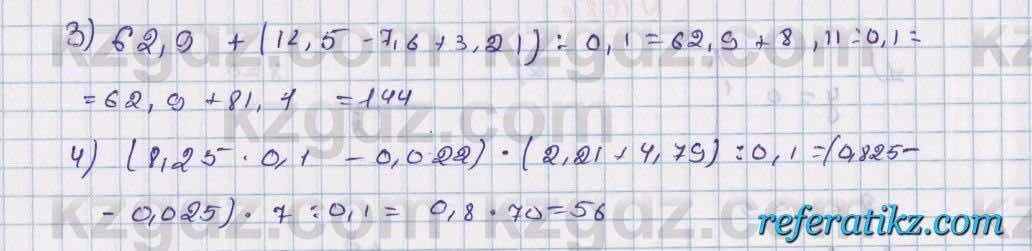 3) 62,9 + (12,5 - 7,6 + 3,21) : 0,1 = 62,9 + 8,11 : 0,1 =
= 62,9 + 81,1 = 144
4) (8,25 · 0,1 - 0,022) · (2,21 + 4,79) : 0,1 = (0,825 -
- 0,025) · 7 : 0,1 = 0,8 · 70 = 56
kzgdz.com
referatikz.com